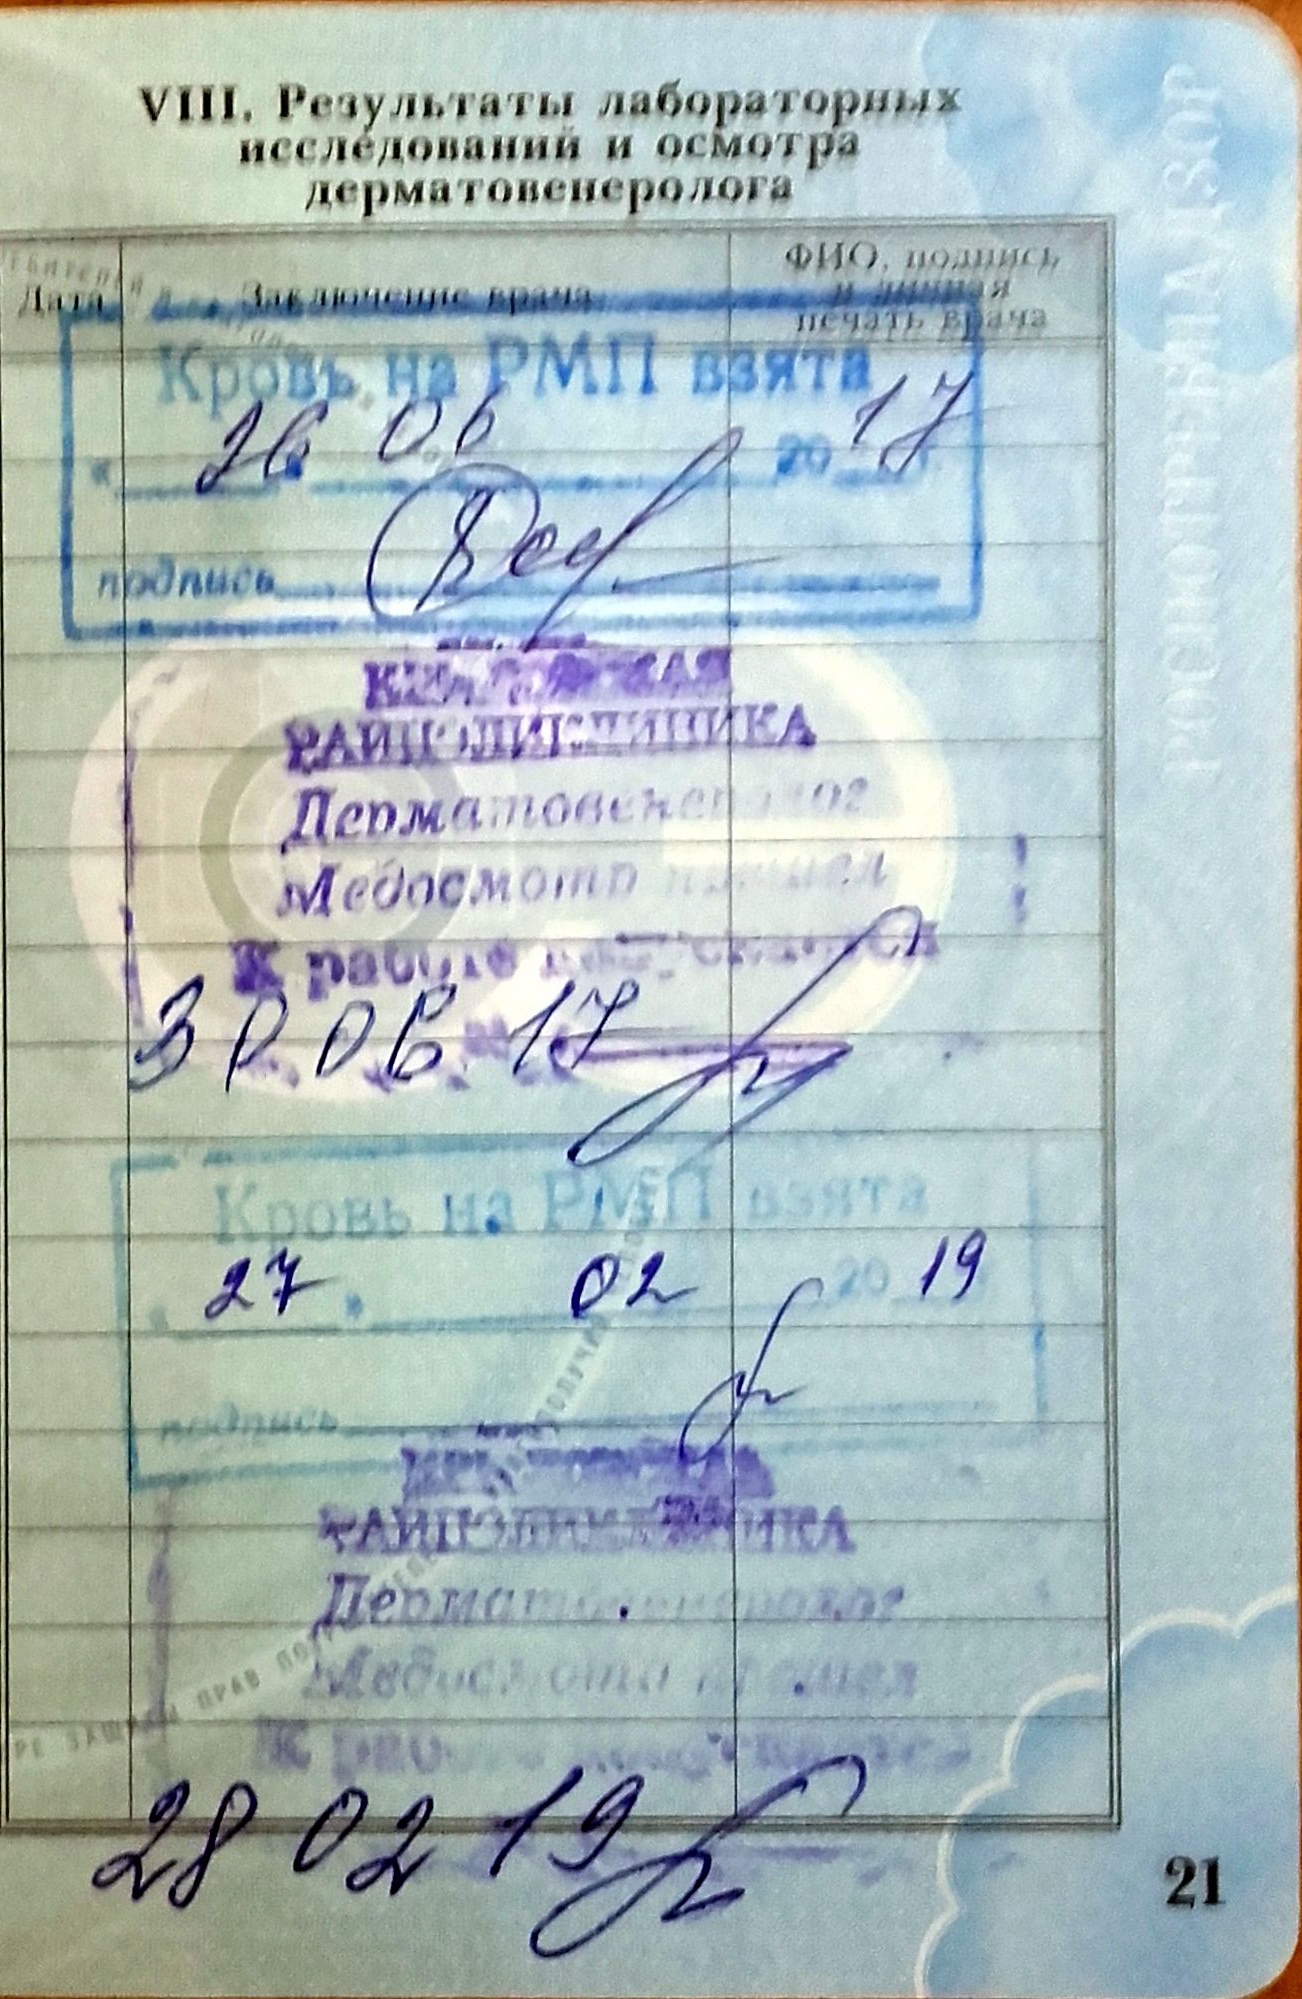 VIII. Результаты лабораторных
исследований и осмотра
дерматовенеролога
Дата
Заключение врача
ФИО, подпись
и личная
печать врача
Кровь на РМП взята
« 26 » 06 2017 г.
подпись
РАЙПОЛИКЛИНИКА
Дерматовенеролог
Медосмотр прошел
К работе допускается
30 06 17
Кровь на РМП взята
« 27 » 02 2019
подпись
РАЙПОЛИКЛИНИКА
Дерматовенеролог
Медосмотр прошел
К работе допускается
28 02 19
21
РОСПОТРЕБНАДЗОР
ЗАЩИТЫ ПРАВ